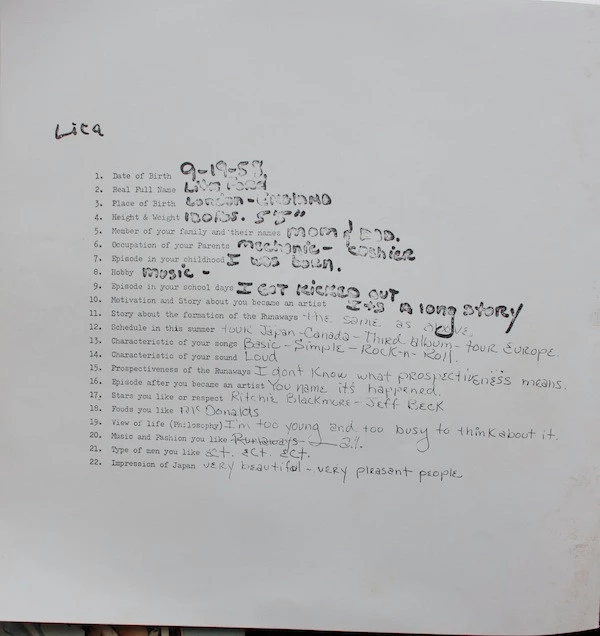 Lita
1. Date of Birth 9-19-58.
2. Real Full Name Lita Ford
3. Place of Birth London - ENGLAND
4. Height & Weight 100 lbs. 5'5"
5. Member of your family and their names mom & DAD.
6. Occupation of your Parents mechanic - cashier
7. Episode in your childhood I was born.
8. Hobby music -
9. Episode in your school days I GOT KICKED OUT
10. Motivation and Story about you became an artist It's A long STORY
11. Story about the formation of the Runaways - the same as above.
12. Schedule in this summer tour Japan - Canada - Third album - tour EUROPE.
13. Characteristic of your songs Basic - Simple - Rock-n-Roll.
14. Characteristic of your sound Loud
15. Prospectiveness of the Runaways I don't know what prospectiveness means.
16. Episode after you became an artist You name it's happened.
17. Stars you like or respect Ritchie Blackmore - Jeff Beck
18. Foods you like McDonalds
19. View of life (Philosophy) I'm too young and too busy to think about it.
20. Music and Fashion you like Runaways
21. Type of men you like ect. ect. ect.
22. Impression of Japan very beautiful - very pleasant people